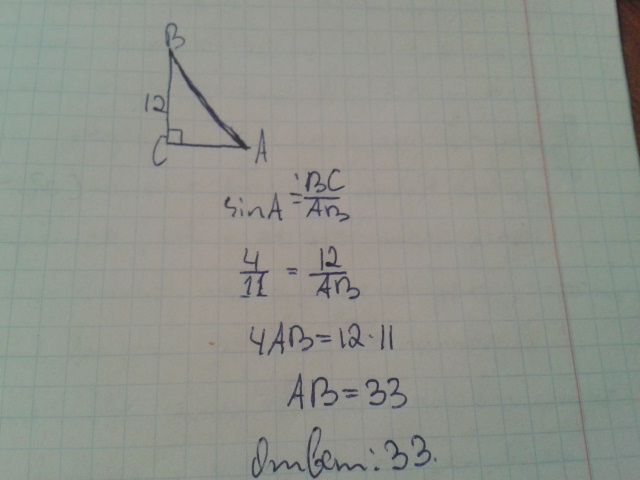 B
12
C A
sinA = BC/AB
4/11 = 12/AB
4AB=12·11
AB=33
Ответ: 33.